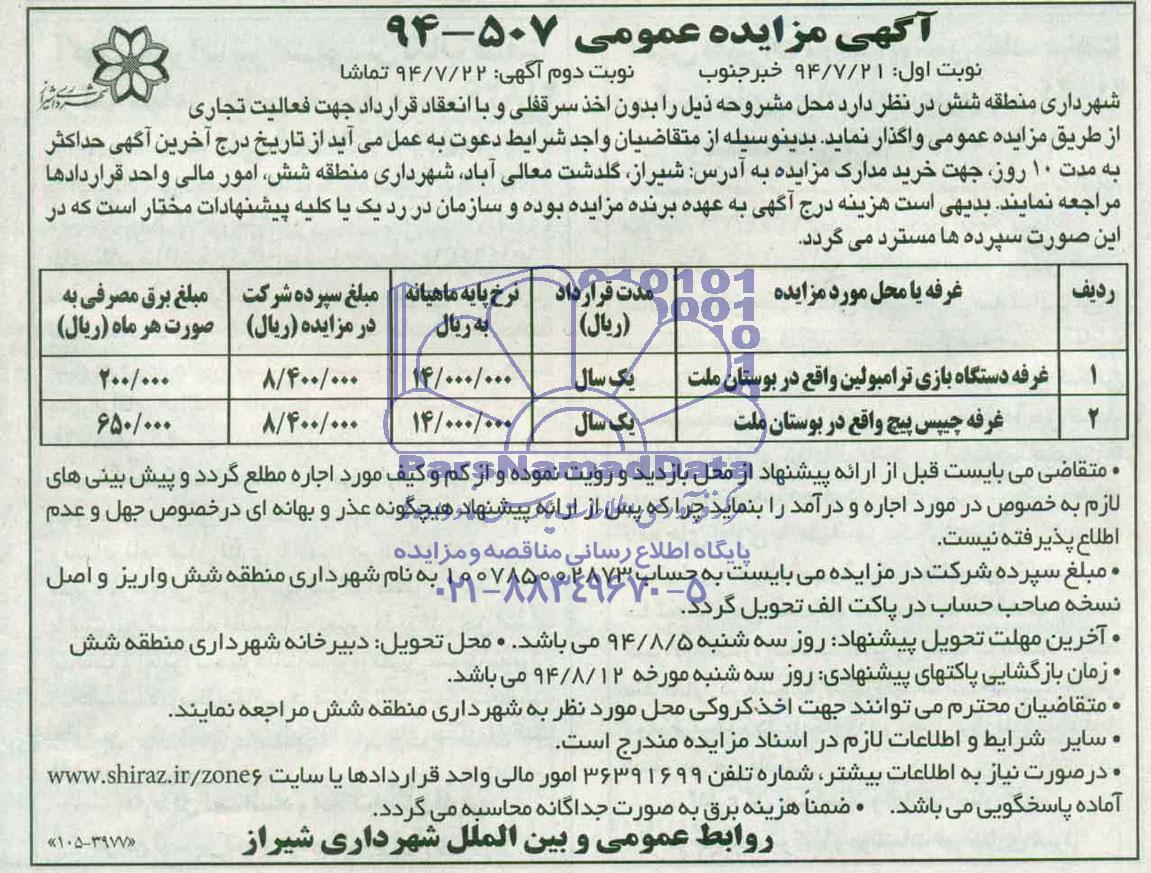 آگهی مزایده عمومی ۵۰۷-۹۴
نوبت اول: ۹۴/۷/۲۱ خبرجنوب نوبت دوم آگهی: ۹۴/۷/۲۲ تماشا
شهرداری منطقه شش در نظر دارد محل مشروحه ذیل را بدون اخذ سرقفلی و با انعقاد قرارداد جهت فعالیت تجاری
از طریق مزایده عمومی واگذار نماید. بدینوسیله از متقاضیان واجد شرایط دعوت به عمل می آید از تاریخ درج آخرین آگهی حداکثر
به مدت ۱۰ روز، جهت خرید مدارک مزایده به آدرس: شیراز، گلدشت معالی آباد، شهرداری منطقه شش، امور مالی واحد قراردادها
مراجعه نمایند. بدیهی است هزینه درج آگهی به عهده برنده مزایده بوده و سازمان در رد یک یا کلیه پیشنهادات مختار است که در
این صورت سپرده ها مسترد می گردد.
ردیف غرفه یا محل مورد مزایده مدت قرارداد (ریال) نرخ پایه ماهیانه به ریال مبلغ سپرده شرکت در مزایده (ریال) مبلغ برق مصرفی به صورت هر ماه (ریال)
۱ غرفه دستگاه بازی ترامبولین واقع در بوستان ملت یک سال ۱۴/۰۰۰/۰۰۰ ۸/۴۰۰/۰۰۰ ۲۰۰/۰۰۰
۲ غرفه چیپس پیچ واقع در بوستان ملت یک سال ۱۴/۰۰۰/۰۰۰ ۸/۴۰۰/۰۰۰ ۶۵۰/۰۰۰
• متقاضی می بایست قبل از ارائه پیشنهاد از محل بازدید و رویت نموده و از کم و کیف مورد اجاره مطلع گردد و پیش بینی های
لازم به خصوص در مورد اجاره و درآمد را بنماید چرا که پس از ارائه پیشنهاد هیچگونه عذر و بهانه ای درخصوص جهل و عدم
اطلاع پذیرفته نیست.
• مبلغ سپرده شرکت در مزایده می بایست به حساب ۱۰۰۷۸۵۰۰۲۸۷۳ به نام شهرداری منطقه شش واریز و اصل
نسخه صاحب حساب در پاکت الف تحویل گردد.
• آخرین مهلت تحویل پیشنهاد: روز سه شنبه ۹۴/۸/۵ می باشد. • محل تحویل: دبیرخانه شهرداری منطقه شش
• زمان بازگشایی پاکتهای پیشنهادی: روز سه شنبه مورخه ۹۴/۸/۱۲ می باشد.
• متقاضیان محترم می توانند جهت اخذ کروکی محل مورد نظر به شهرداری منطقه شش مراجعه نمایند.
• سایر شرایط و اطلاعات لازم در اسناد مزایده مندرج است.
• درصورت نیاز به اطلاعات بیشتر، شماره تلفن ۳۶۳۹۱۶۹۹ امور مالی واحد قراردادها با سایت www.shiraz.ir/zone۶
آماده پاسخگویی می باشد. • ضمنا هزینه برق به صورت جداگانه محاسبه می گردد.
روابط عمومی و بین الملل شهرداری شیراز
«۱۰۵-۳۹۷۷»
شهرداری شیراز
ParsNamadData
پایگاه اطلاع رسانی مناقصه ومزایده
۰۲۱-۸۸۳۴۹۶۷۰-۵